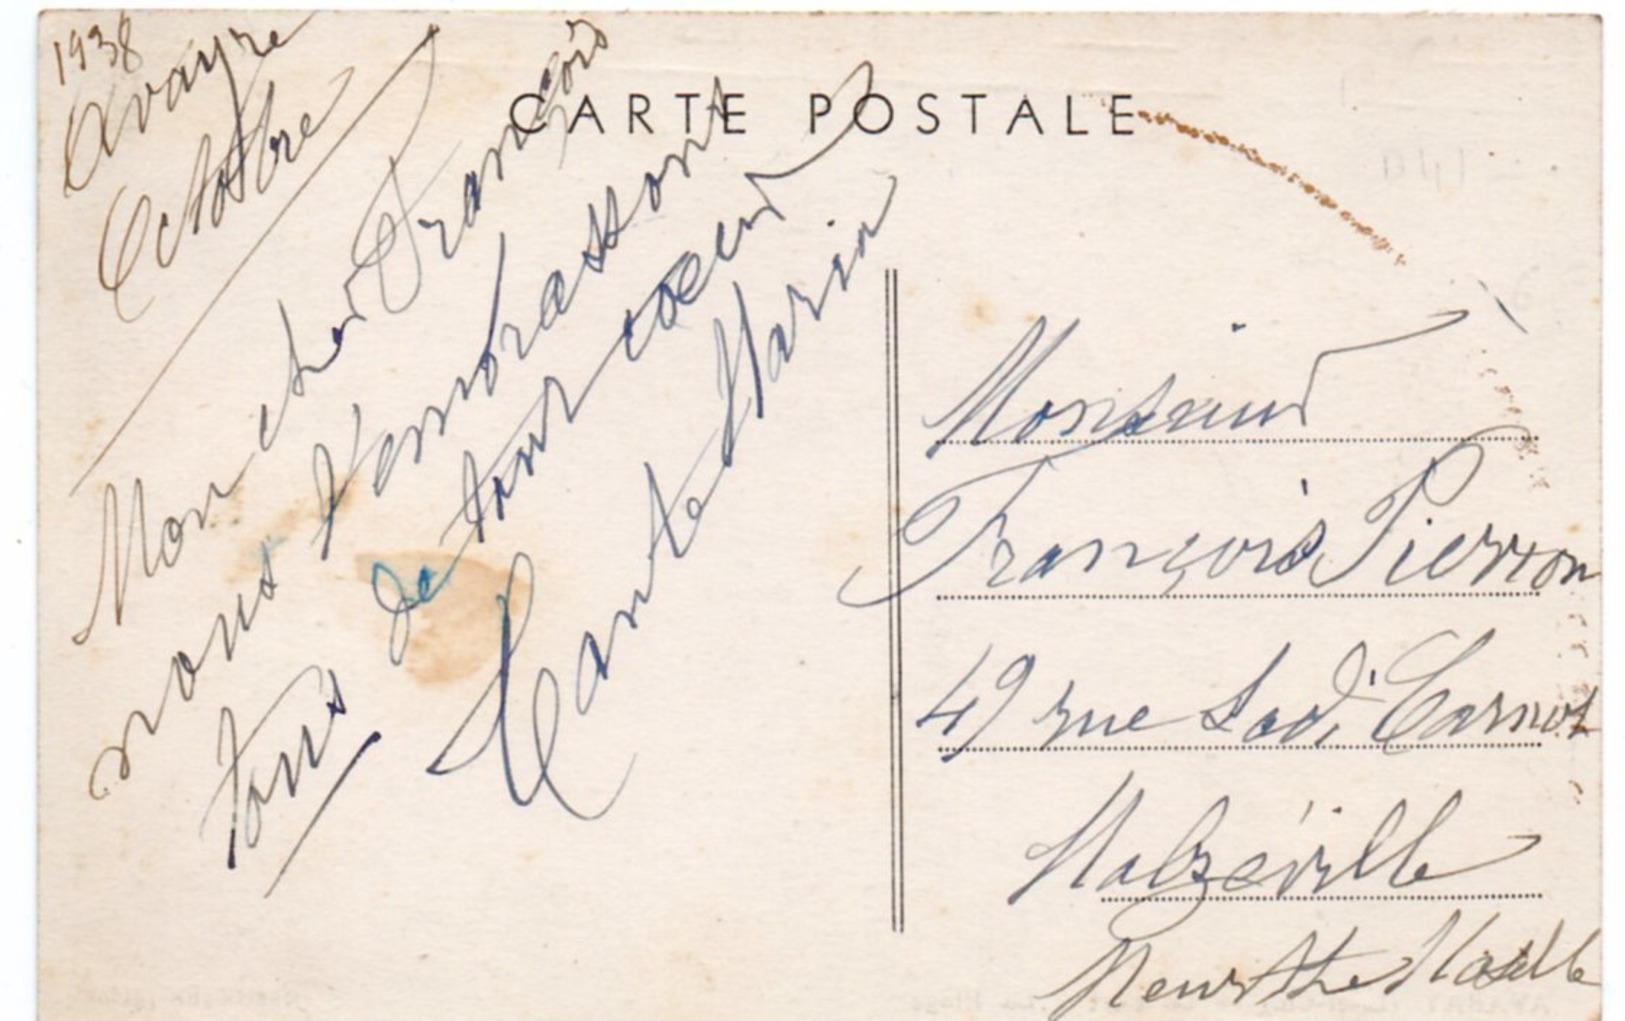 1938
Octobre
CARTE POSTALE
Mon cher François
nous t'embrassons
tous de tout coeur
Tante Maria
Monsieur
François Pierron
49 rue Sadi Carnot
Malzéville
Meurthe Moselle